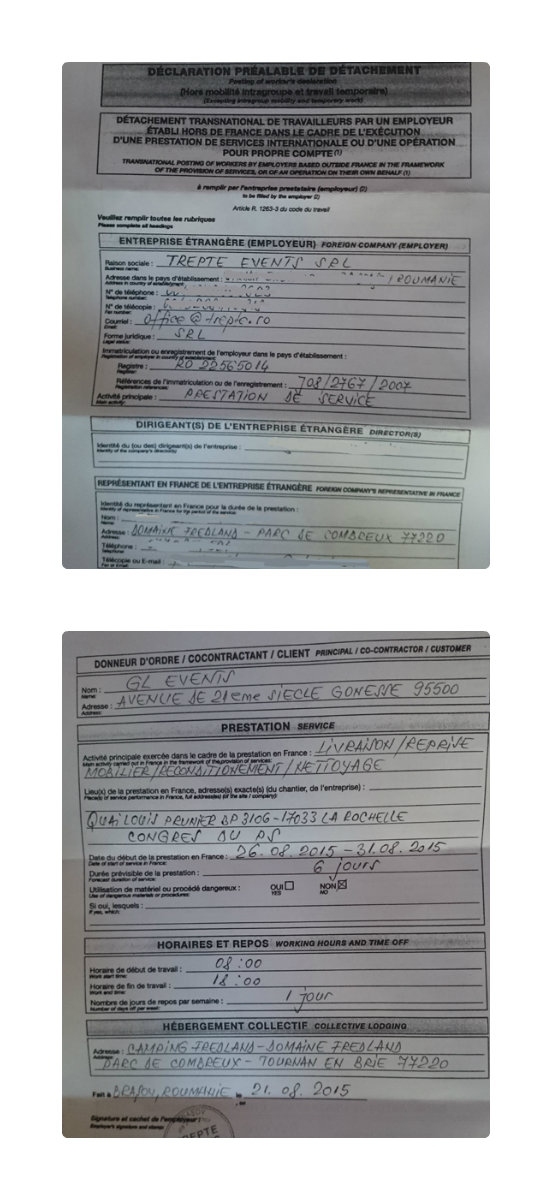 DÉCLARATION PRÉALABLE DE DÉTACHEMENT
Posting of worker's declaration
(Hors mobilité intragroupe et travail temporaire)
(Excepting intragroup mobility and temporary work)
DÉTACHEMENT TRANSNATIONAL DE TRAVAILLEURS PAR UN EMPLOYEUR
ÉTABLI HORS DE FRANCE DANS LE CADRE DE L'EXÉCUTION
D'UNE PRESTATION DE SERVICES INTERNATIONALE OU D'UNE OPÉRATION
POUR PROPRE COMPTE (1)
TRANSNATIONAL POSTING OF WORKERS BY EMPLOYERS BASED OUTSIDE FRANCE IN THE FRAMEWORK
OF THE PROVISION OF SERVICES, OR OF AN OPERATION ON THEIR OWN BEHALF (1)
à remplir par l'entreprise prestataire (employeur) (2)
to be filled by the employer (2)
Article R. 1263-3 du code du travail
Veuillez remplir toutes les rubriques
Please complete all headings
ENTREPRISE ÉTRANGÈRE (EMPLOYEUR) FOREIGN COMPANY (EMPLOYER)
Raison sociale : TREPTE EVENTS SRL
Business name:
Adresse dans le pays d'établissement : / ROUMANIE
Address in country of establishment:
N° de téléphone :
Telephone number:
N° de télécopie :
Fax number:
Courriel : office@trepte.ro
Email:
Forme juridique : SRL
Legal status:
Immatriculation ou enregistrement de l'employeur dans le pays d'établissement :
Registration of employer in country of establishment:
Registre : RO 22565014
Register:
Références de l'immatriculation ou de l'enregistrement : J08/2767/2007
Registration references:
Activité principale : PRESTATION DE SERVICE
Main activity:
DIRIGEANT(S) DE L'ENTREPRISE ÉTRANGÈRE DIRECTOR(S)
Identité du (ou des) dirigeant(s) de l'entreprise :
Identity of the company's director(s):
REPRÉSENTANT EN FRANCE DE L'ENTREPRISE ÉTRANGÈRE FOREIGN COMPANY'S REPRESENTATIVE IN FRANCE
Identité du représentant en France pour la durée de la prestation :
Identity of representative in France for the period of the service:
Nom :
Name:
Adresse : DOMAINE FREDLAND - PARC DE COMBREUX 77220
Address:
Téléphone :
Telephone:
Télécopie ou E-mail :
Fax or Email:
DONNEUR D'ORDRE / COCONTRACTANT / CLIENT PRINCIPAL / CO-CONTRACTOR / CUSTOMER
Nom : GL EVENTS
Name:
Adresse : AVENUE DE 21eme SIECLE GONESSE 95500
Address:
PRESTATION SERVICE
Activité principale exercée dans le cadre de la prestation en France : LIVRAISON/REPRISE
Main activity carried out in France in the framework of the provision of services:
MOBILIER/RECONDITIONEMENT/NETTOYAGE
Lieu(x) de la prestation en France, adresse(s) exacte(s) (du chantier, de l'entreprise) :
Place(s) of service performance in France, full address(es) (of the site / company):
QUAI LOUIS PRUNIER BP 3106-17033 LA ROCHELLE
CONGRES DU PS
Date du début de la prestation en France : 26.08.2015 - 31.08.2015
Date of start of service in France:
Durée prévisible de la prestation : 6 jours
Forecast duration of service:
Utilisation de matériel ou procédé dangereux : OUI ☐ NON ☒
Use of dangerous materials or procedures: YES NO
Si oui, lesquels :
If yes, which:
HORAIRES ET REPOS WORKING HOURS AND TIME OFF
Horaire de début de travail : 08:00
Work start time:
Horaire de fin de travail : 18:00
Work end time:
Nombre de jours de repos par semaine : 1 jour
Number of days off per week:
HÉBERGEMENT COLLECTIF COLLECTIVE LODGING
Adresse : CAMPING FREDLAND-DOMAINE FREDLAND
Address:
PARC DE COMBREUX - TOURNAN EN BRIE 77220
Fait à BRASOV, ROUMANIE le 21.08.2015
Signature et cachet de l'employeur :
Employer's signature and stamp: